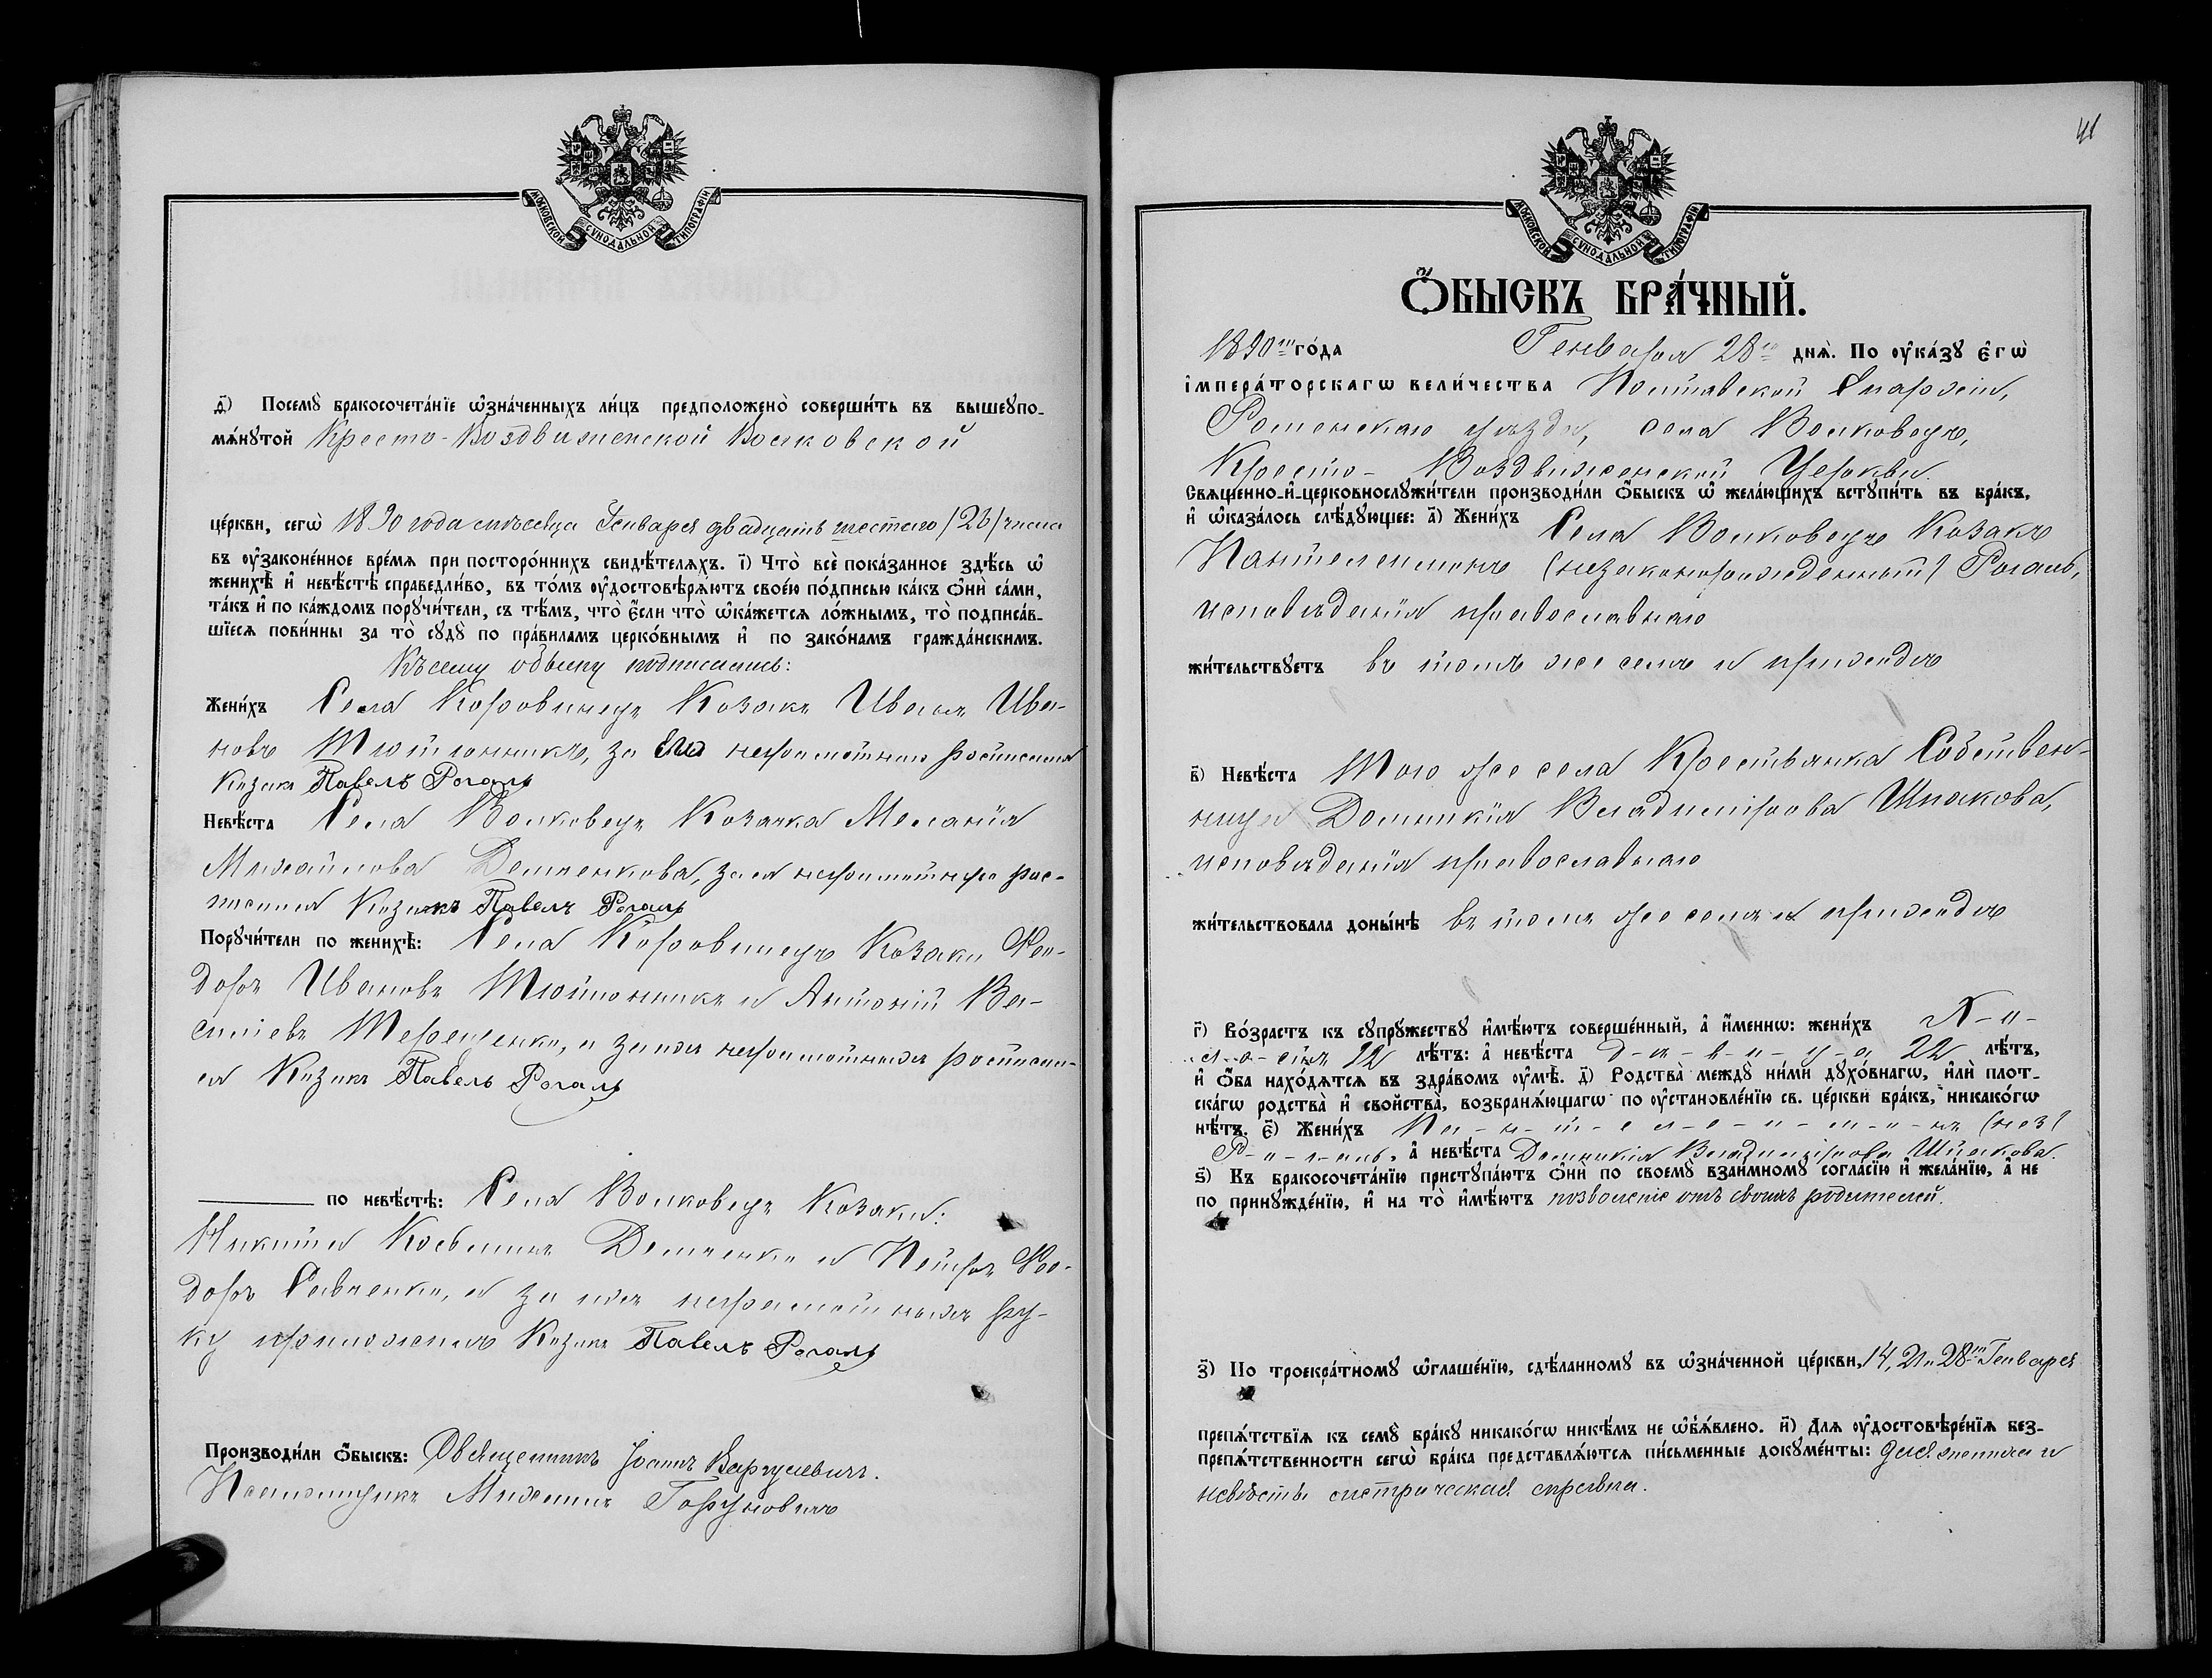 МОСКОВСКОЙ СѴНОДАЛЬНОЙ ТИПОГРАФІИ
ѳ҃) Посемꙋ бракосочета́нїе ѡ҆зна́ченныхъ ли́цъ предположено̀ соверши́ть въ вышеꙋпо-
мѧ́нꙋтой Кресто-Воздвиженской Волковской
це́ркви, сегѡ̀ 1890 года мѣсяца Генваря двадцать шестаго /26/ числа
въ ᲂу҆законе́нное вре́мѧ при посторо́ннихъ свидѣ́телѧхъ. і҃) Что̀ всѐ пока́занное здѣ́сь ѡ҆
женихѣ̀ и҆ невѣ́стѣ справедли́во, въ то́мъ ᲂу҆достовѣрѧ́ютъ свое́ю по́дписью ка́къ ѻ҆нѝ са́ми,
та́къ и҆ по ка́ждомъ порꙋчи́тели, съ тѣ́мъ, что̀ є҆́сли что̀ ѡ҆ка́жетсѧ ло́жнымъ, то̀ подписа́в-
шїесѧ пови́нны за то̀ сꙋдꙋ̀ по пра́виламъ церко́внымъ и҆ по зако́намъ гражда́нскимъ.
Къ сему обыску подписались:
Жени́хъ Села Коровинецъ Козакъ Иванъ Ива-
новъ Тютюнникъ, за его неграмотного росписался
Козакъ Павелъ Рогаль
Невѣ́ста Села Волковецъ Козачка Меланія
Михайлова Демченкова, за ея неграмотную рос-
писался Козакъ Павелъ Рогаль
Порꙋчи́тели по женихѣ̀: Села Коровинецъ Козаки Фео-
доръ Ивановъ Тютюнникъ и Антоній Ва-
силіевъ Терещенко, а за нихъ неграмотныхъ росписал-
ся Козакъ Павелъ Рогаль
по невѣ́стѣ: Села Волковецъ Козаки:
Никита Косьминъ Демченко и Петръ Фео-
доръ Савченко, а за нихъ неграмотныхъ ру-
ку приложилъ Козакъ Павелъ Рогаль
Производи́ли ѻ҆́быскъ: Священникъ Іоаннъ
Псаломщикъ Михаилъ Горгуновичъ
41
МОСКОВСКОЙ СѴНОДАЛЬНОЙ ТИПОГРАФІИ
Ѻ҆́БЫСКЪ БРА́ЧНЫЙ.
1890го го́да Генваря 28го днѧ̀. По ᲂу҆ка́зꙋ є҆гѡ̀
і҆мпера́торскагѡ вели́чества Полтавской Епархіи,
Роменскаго уѣзда, села Волковецъ,
Кресто-Воздвиженской Церкви.
Свѧще́нно-и҆-церковнослꙋжи́тели производи́ли ѻ҆́быскъ ѡ҆ жела́ющихъ встꙋпи́ть въ бра́къ,
и҆ ѡ҆каза́лось слѣ́дꙋющее: а҃) Жени́хъ Села Волковецъ Козакъ
Пантелеимонъ (незаконорожденный) Рогаль,
исповѣданія православнаго
жи́тельствꙋетъ въ томъ же селѣ и приходѣ
в҃) Невѣ́ста Того же села Крестьянка Собствен-
ница Домникія Владимірова Шпакова,
исповѣданія православнаго
жи́тельствовала доны́нѣ въ томъ же селѣ и приходѣ
г҃) Во́зрастъ къ сꙋпрꙋ́жествꙋ и҆мѣ́ютъ соверше́нный, а҆ и҆́меннѡ: жени́хъ Х-о-
л-о-стъ 22 лѣ́тъ: а҆ невѣ́ста д-ѣ-в-и-ц-а 22 лѣ́тъ,
и҆ ѻ҆́ба нахо́дѧтсѧ въ здра́вомъ ᲂу҆мѣ̀. д҃) Родства̀ междꙋ̀ ни́ми дꙋхо́внагѡ, и҆лѝ плот-
ска́гѡ родства̀ и҆ сво́йства̀, возбранѧ́ющагѡ по ᲂу҆становле́нїю св. це́ркви бра́къ, никако́гѡ
нѣ́тъ. є҃) Жени́хъ П-а-н-т-е-л-е-и-м-о-нъ (нез)
Р-о-г-аль, а҆ невѣ́ста Домникія Владимірова Шпакова.
ѕ҃) Къ бракосочета́нїю пристꙋпа́ютъ ѻ҆нѝ по своемꙋ̀ взаи́мномꙋ согла́сїю и҆ жела́нїю, а҆ не
по принꙋжде́нїю, и҆ на то̀ и҆мѣ́ютъ позволеніе отъ своихъ родителей.
з҃) По троекра́тномꙋ ѡ҆глаше́нїю, сдѣ́ланномꙋ въ ѡ҆зна́ченной це́ркви, 14, 21 и 28го Генваря
препѧ́тствїѧ къ семꙋ̀ бра́кꙋ никако́гѡ никѣ́мъ не ѡ҆б̾ѧ́влено. и҃) Длѧ ᲂу҆достовѣре́нїѧ без-
препѧ́тственности сегѡ̀ бра́ка представлѧ́ютсѧ пи́сьменные докꙋме́нты: для жениха и
невѣсты метрическая справка.